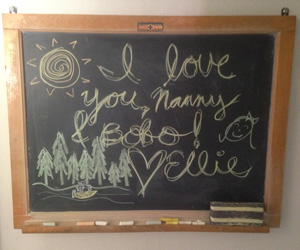 I love
you, Nanny
& Bobo!
Ellie